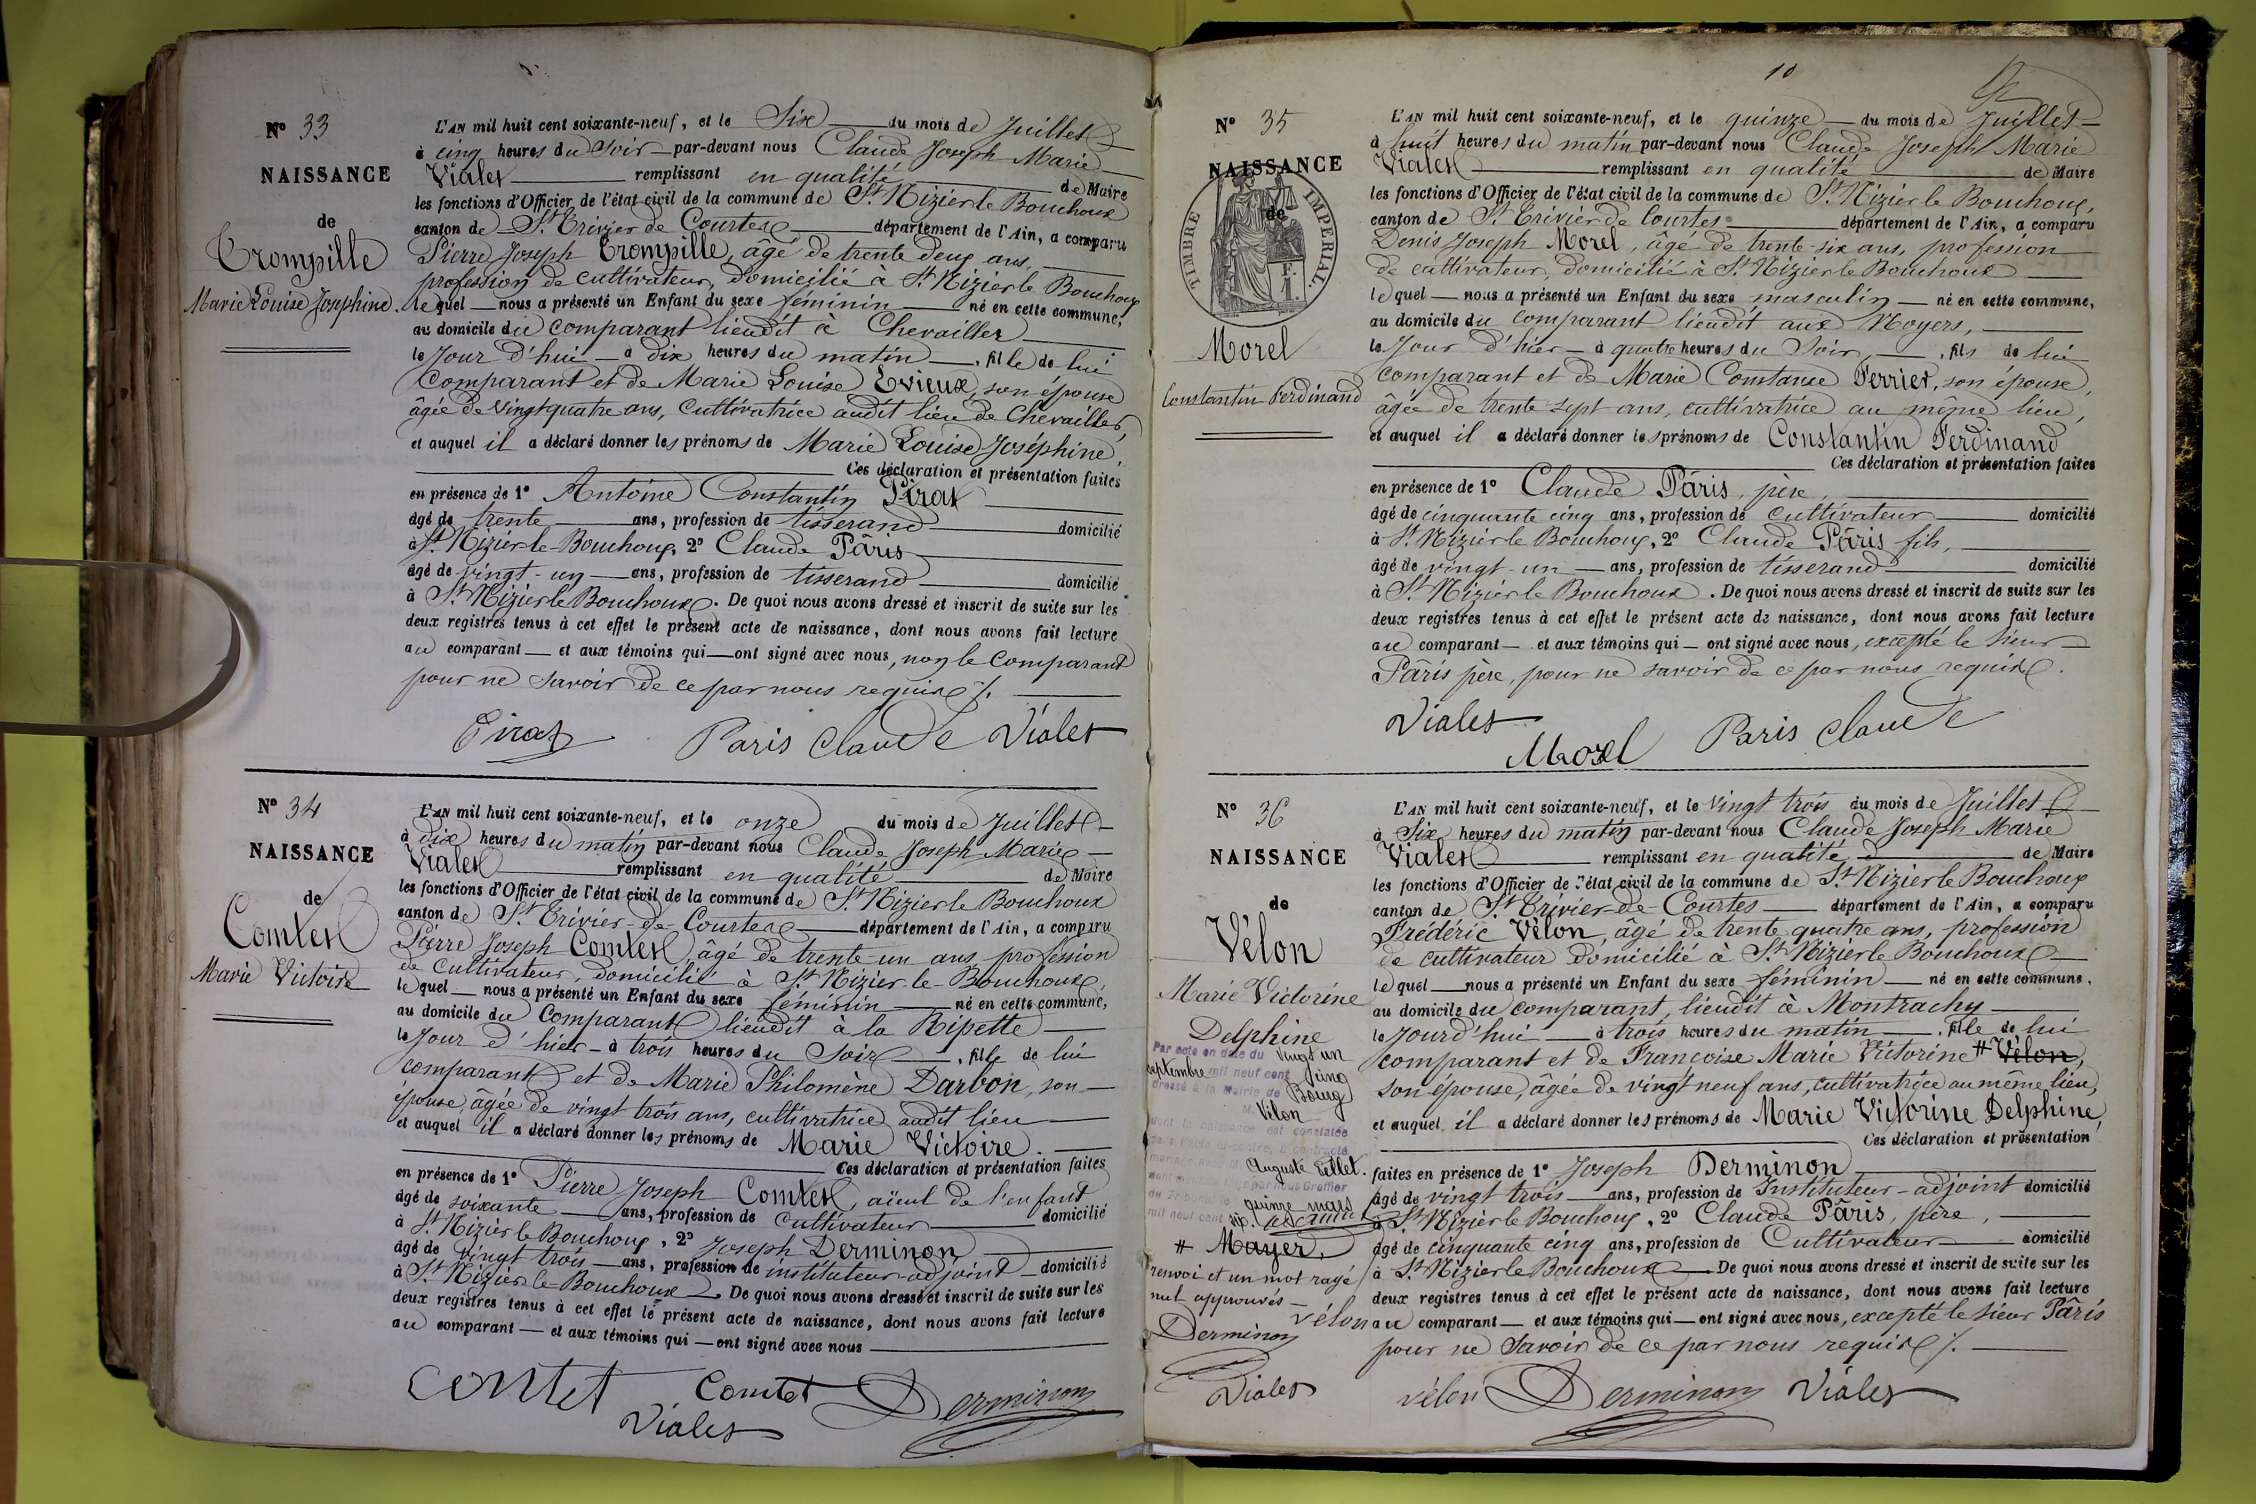 Nº 33
NAISSANCE
de
Trompille
Marie Louise Josephine.
L'AN mil huit cent soixante-neuf, et le Six du mois de Juillet
à cinq heures du Soir par-devant nous Claude Joseph Marie
Vialet remplissant en qualité de Maire
les fonctions d'Officier de l'état civil de la commune de St Nizier le Bouchoux
canton de St Trivier de Courtes département de l'Ain, a comparu
Pierre Joseph Trompille, âgé de trente deux ans,
profession de cultivateur, domicilié à St Nizier le Bouchoux
lequel nous a présenté un Enfant du sexe féminin né en cette commune,
au domicile du comparant lieudit à Chevailler
le Jour d'hui à dix heures du matin, fille de lui
Comparant et de Marie Louise Evieux, son épouse
âgée de Vingt quatre ans, cultivatrice audit lieu de Chevailler,
et auquel il a déclaré donner les prénoms de Marie Louise Joséphine,
Ces déclaration et présentation faites
en présence de 1º Antoine Constantin Pirat
âgé de trente ans, profession de tisserand domicilié
à St Nizier le Bouchoux, 2º Claude Pâris
âgé de vingt-un ans, profession de tisserand domicilié
à St Nizier le Bouchoux. De quoi nous avons dressé et inscrit de suite sur les
deux registres tenus à cet effet le présent acte de naissance, dont nous avons fait lecture
au comparant et aux témoins qui ont signé avec nous, non le Comparant
pour ne savoir de ce par nous requis /.
Pirat Paris Claude Vialet
Nº 34
NAISSANCE
de
Comtet
Marie Victoire
L'AN mil huit cent soixante-neuf, et le onze du mois de Juillet
à dix heures du matin par-devant nous Claude Joseph Marie
Vialet remplissant en qualité de Maire
les fonctions d'Officier de l'état civil de la commune de St Nizier le Bouchoux
canton de St Trivier de Courtes département de l'Ain, a comparu
Pierre Joseph Comtet, âgé de trente un ans, profession
de cultivateur, domicilié à St Nizier le Bouchoux,
lequel nous a présenté un Enfant du sexe féminin né en cette commune,
au domicile du Comparant lieudit à la Ripette
le Jour d'hier à trois heures du Soir, fille de lui
comparant et de Marie Philomène Darbon, son
épouse, âgée de vingt trois ans, cultivatrice audit lieu
et auquel il a déclaré donner les prénoms de Marie Victoire.
Ces déclaration et présentation faites
en présence de 1º Pierre Joseph Comtet, aïeul de l'enfant
âgé de soixante ans, profession de cultivateur domicilié
à St Nizier le Bouchoux, 2º Joseph Derminon
âgé de vingt trois ans, profession de instituteur-adjoint domicilié
à St Nizier le Bouchoux. De quoi nous avons dressé et inscrit de suite sur les
deux registres tenus à cet effet le présent acte de naissance, dont nous avons fait lecture
au comparant et aux témoins qui ont signé avec nous
Comtet Comtet Derminon
Vialet
10
Nº 35
NAISSANCE
de
TIMBRE IMPERIAL.
F.
1.
Morel
Constantin Ferdinand
L'AN mil huit cent soixante-neuf, et le quinze du mois de Juillet
à huit heures du matin par-devant nous Claude Joseph Marie
Vialet remplissant en qualité de Maire
les fonctions d'Officier de l'état civil de la commune de St Nizier le Bouchoux,
canton de St Trivier de Courtes département de l'Ain, a comparu
Denis Joseph Morel, âgé de trente-six ans, profession
de cultivateur, domicilié à St Nizier le Bouchoux
lequel nous a présenté un Enfant du sexe masculin né en cette commune,
au domicile du comparant lieudit aux Noyers,
le Jour d'hier à quatre heures du Soir, fils de lui
Comparant et de Marie Constance Ferrier, son épouse,
âgée de trente-sept ans, cultivatrice au même lieu,
et auquel il a déclaré donner les prénoms de Constantin Ferdinand
Ces déclaration et présentation faites
en présence de 1º Claude Pâris, père,
âgé de cinquante cinq ans, profession de cultivateur domicilié
à St Nizier le Bouchoux, 2º Claude Pâris fils,
âgé de vingt-un ans, profession de tisserand domicilié
à St Nizier le Bouchoux. De quoi nous avons dressé et inscrit de suite sur les
deux registres tenus à cet effet le présent acte de naissance, dont nous avons fait lecture
au comparant et aux témoins qui ont signé avec nous, excepté le Sieur
Pâris père, pour ne savoir de ce par nous requis.
Vialet Morel Paris Claude
Nº 36
NAISSANCE
de
Vélon
Marie Victorine
Delphine
Par acte en date du vingt un
septembre mil neuf cent cinq
dressé à la Mairie de Bourg
Vélon
dont la naissance est constatée
Auguste Pillet.
quinze mars
mil neuf cent six.
# Mayer,
renvoi et un mot rayé
nul approuvés
Vélon
Derminon
Vialet
L'AN mil huit cent soixante-neuf, et le vingt trois du mois de Juillet
à Six heures du matin par-devant nous Claude Joseph Marie
Vialet remplissant en qualité de Maire
les fonctions d'Officier de l'état civil de la commune de St Nizier le Bouchoux
canton de St Trivier de Courtes département de l'Ain, a comparu
Frédéric Vélon, âgé de trente quatre ans, profession
de cultivateur domicilié à St Nizier le Bouchoux
lequel nous a présenté un Enfant du sexe féminin né en cette commune,
au domicile du comparant, lieudit à Montrachy
le Jourd'hui à trois heures du matin, fille de lui
comparant et de Françoise Marie Victorine # Vélon,
son épouse, âgée de vingt neuf ans, cultivatrice au même lieu,
et auquel il a déclaré donner les prénoms de Marie Victorine Delphine,
Ces déclaration et présentation
faites en présence de 1º Joseph Derminon
âgé de vingt trois ans, profession de Instituteur-adjoint domicilié
à St Nizier le Bouchoux, 2º Claude Pâris, père,
âgé de cinquante cinq ans, profession de Cultivateur domicilié
à St Nizier le Bouchoux De quoi nous avons dressé et inscrit de suite sur les
deux registres tenus à cet effet le présent acte de naissance, dont nous avons fait lecture
au comparant et aux témoins qui ont signé avec nous, excepté le Sieur Pâris
pour ne Savoir de ce par nous requis /.
Vélon Derminon Vialet